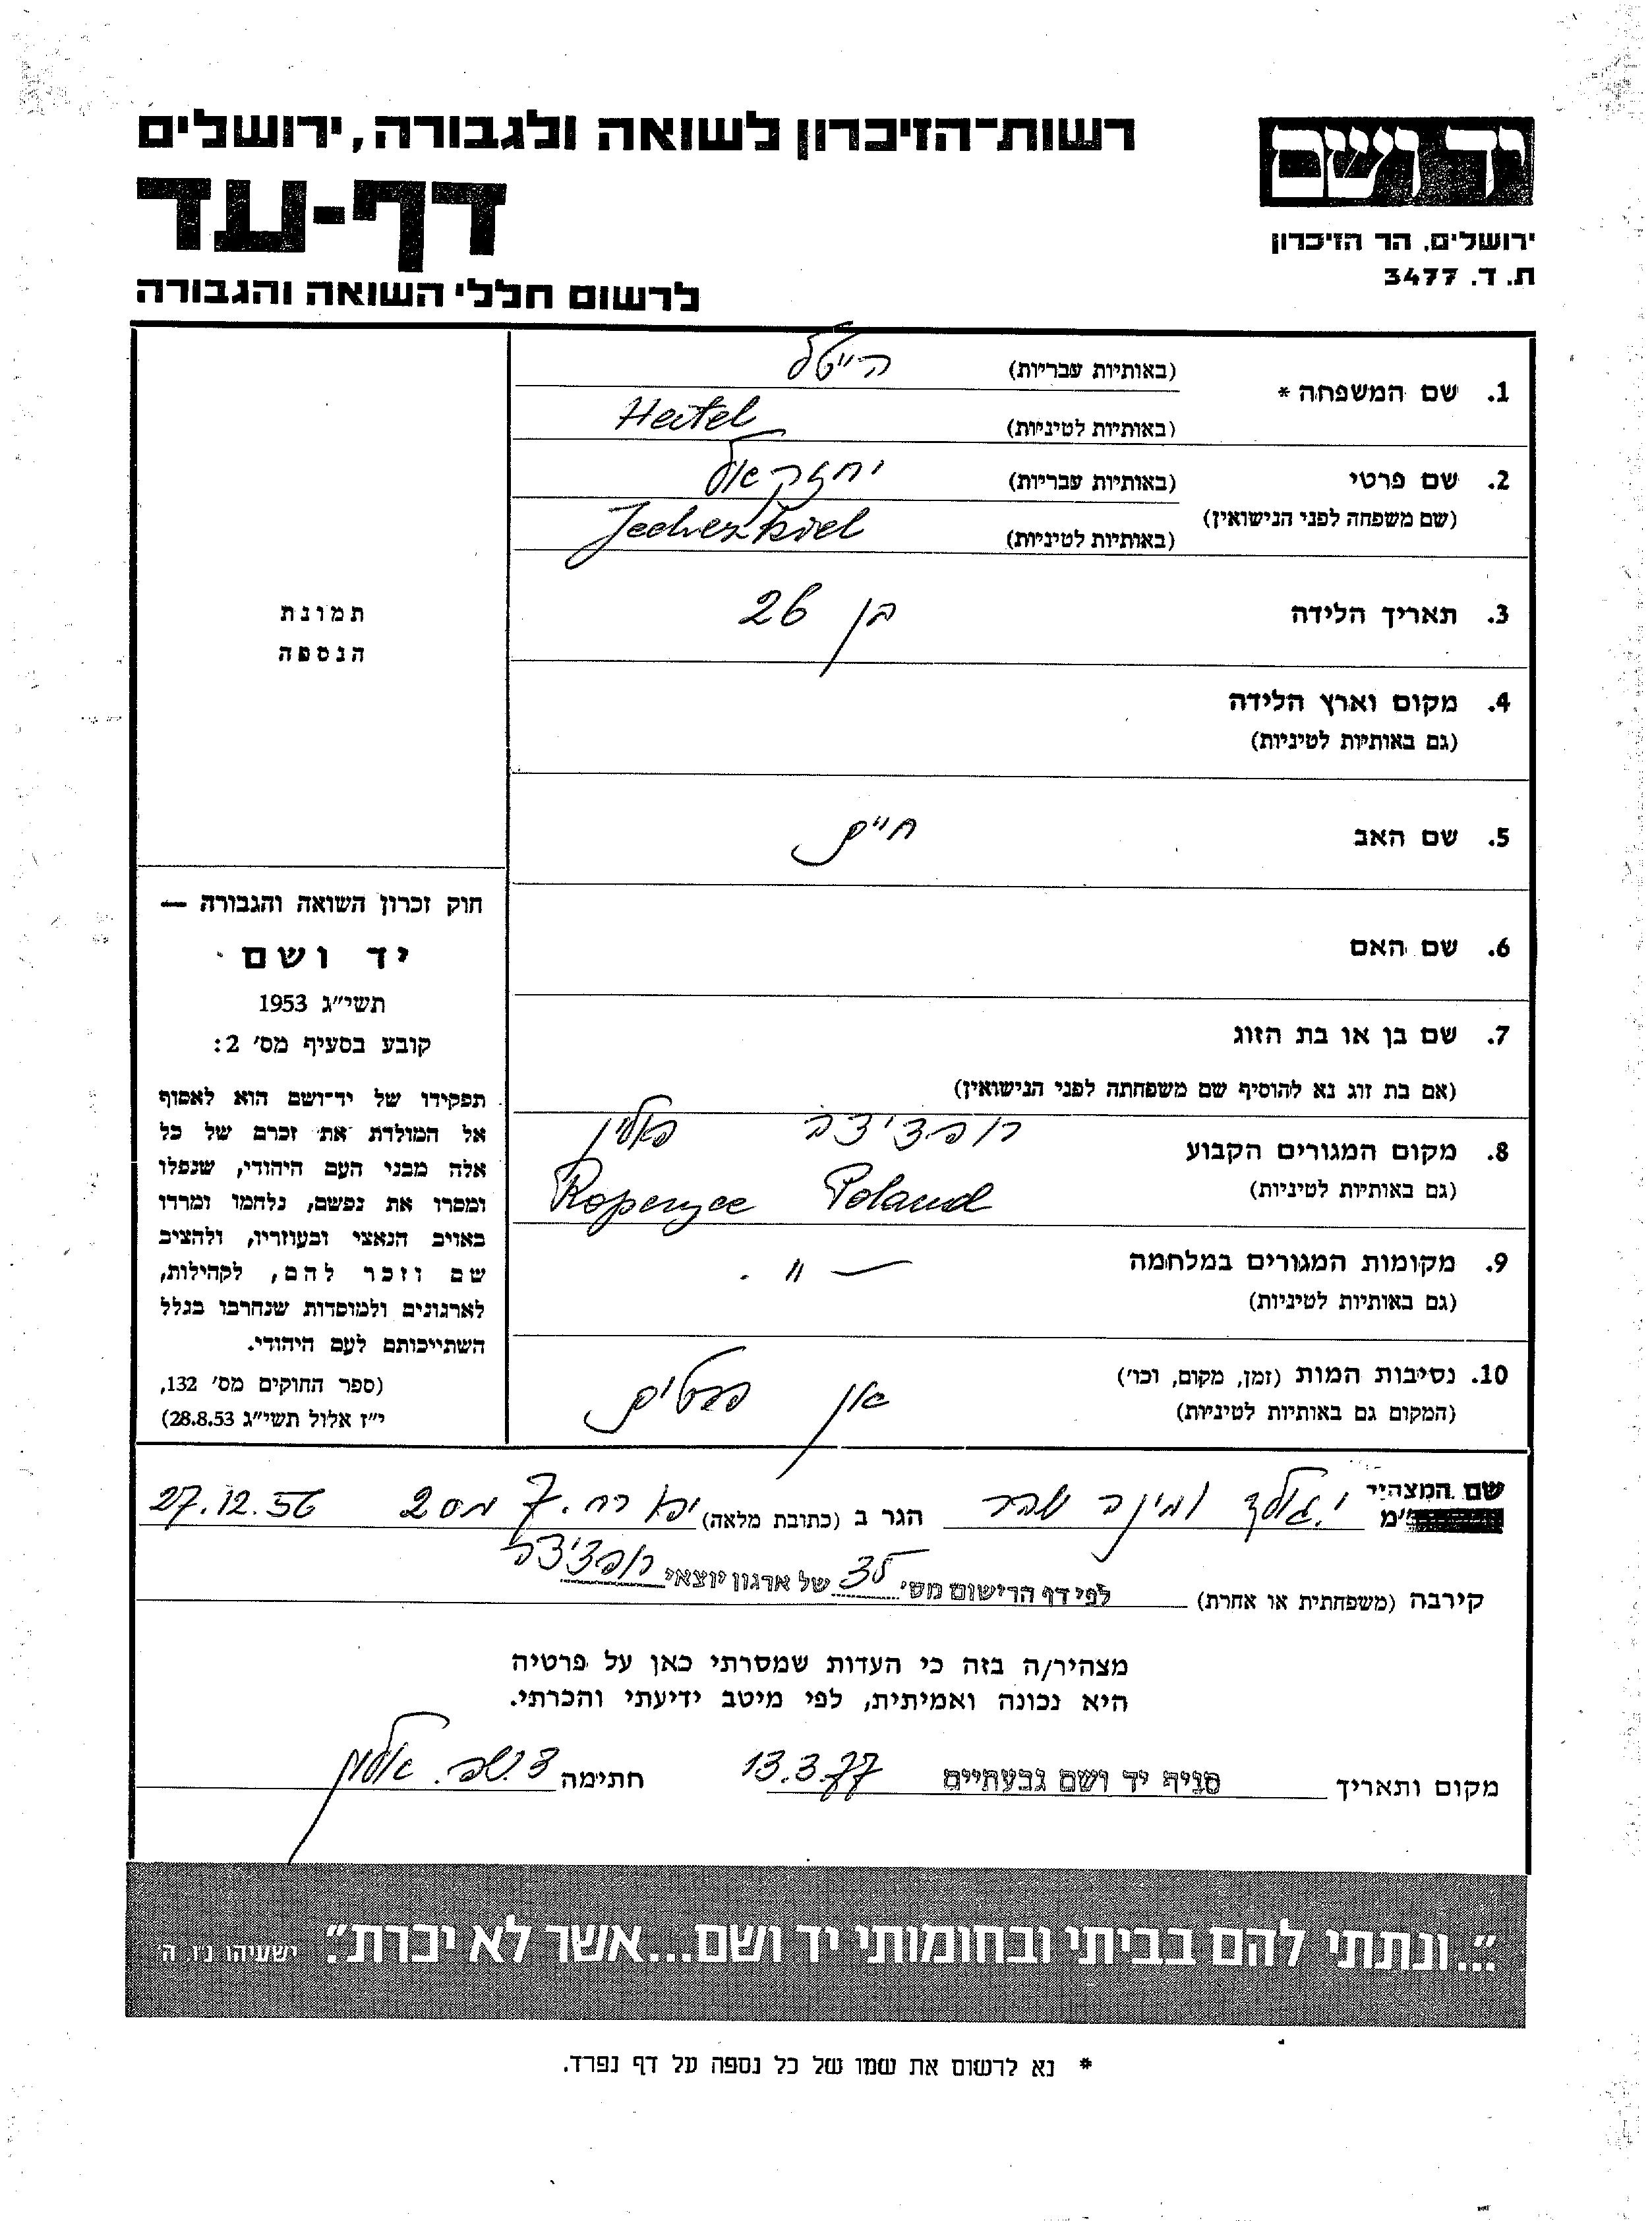 יד ושם
ירושלים, הר הזיכרון
ת. ד. 3477
רשות־הזיכרון לשואה ולגבורה, ירושלים
דף-עד
לרשום חללי השואה והגבורה
1. שם המשפחה * (באותיות עבריות) הייטל
(באותיות לטיניות) Heitel
2. שם פרטי (באותיות עבריות) יחזקאל
(שם משפחה לפני הנישואין) (באותיות לטיניות) Jechezkiel
3. תאריך הלידה בן 26
4. מקום וארץ הלידה
(גם באותיות לטיניות)
5. שם האב חיים
6. שם האם
7. שם בן או בת הזוג
(אם בת זוג נא להוסיף שם משפחתה לפני הנישואין)
8. מקום המגורים הקבוע רופצ'יצה פולין
(גם באותיות לטיניות) Poland Ropczyce
9. מקומות המגורים במלחמה — " .
(גם באותיות לטיניות)
10. נסיבות המות (זמן, מקום, וכו') אין פרטים
(המקום גם באותיות לטיניות)
תמונת
הנספה
חוק זכרון השואה והגבורה —
יד ושם
תשי"ג 1953
קובע בסעיף מס' 2:
תפקידו של יד־ושם הוא לאסוף
אל המולדת את זכרם של כל
אלה מבני העם היהודי, שנפלו
ומסרו את נפשם, נלחמו ומרדו
באויב הנאצי ובעוזריו, ולהציב
שם וזכר להם, לקהילות,
לארגונים ולמוסדות שנחרבו בגלל
השתייכותם לעם היהודי.
(ספר החוקים מס' 132,
י"ז אלול תשי"ג 28.8.53)
שם המצהיר הגר ב (כתובת מלאה) יפו רח. 7 מס 2 27.12.56
קירבה (משפחתית או אחרת) לפי דף הרישום מס' 35 של ארגון יוצאי רופצ'יצה
מצהיר/ה בזה כי העדות שמסרתי כאן על פרטיה
היא נכונה ואמיתית, לפי מיטב ידיעתי והכרתי.
מקום ותאריך סניף יד ושם גבעתיים 13.3.77 חתימה
"...ונתתי להם בביתי ובחומותי יד ושם...אשר לא יכרת". ישעיהו נ"ו, ה'
* נא לרשום את שמו של כל נספה על דף נפרד.